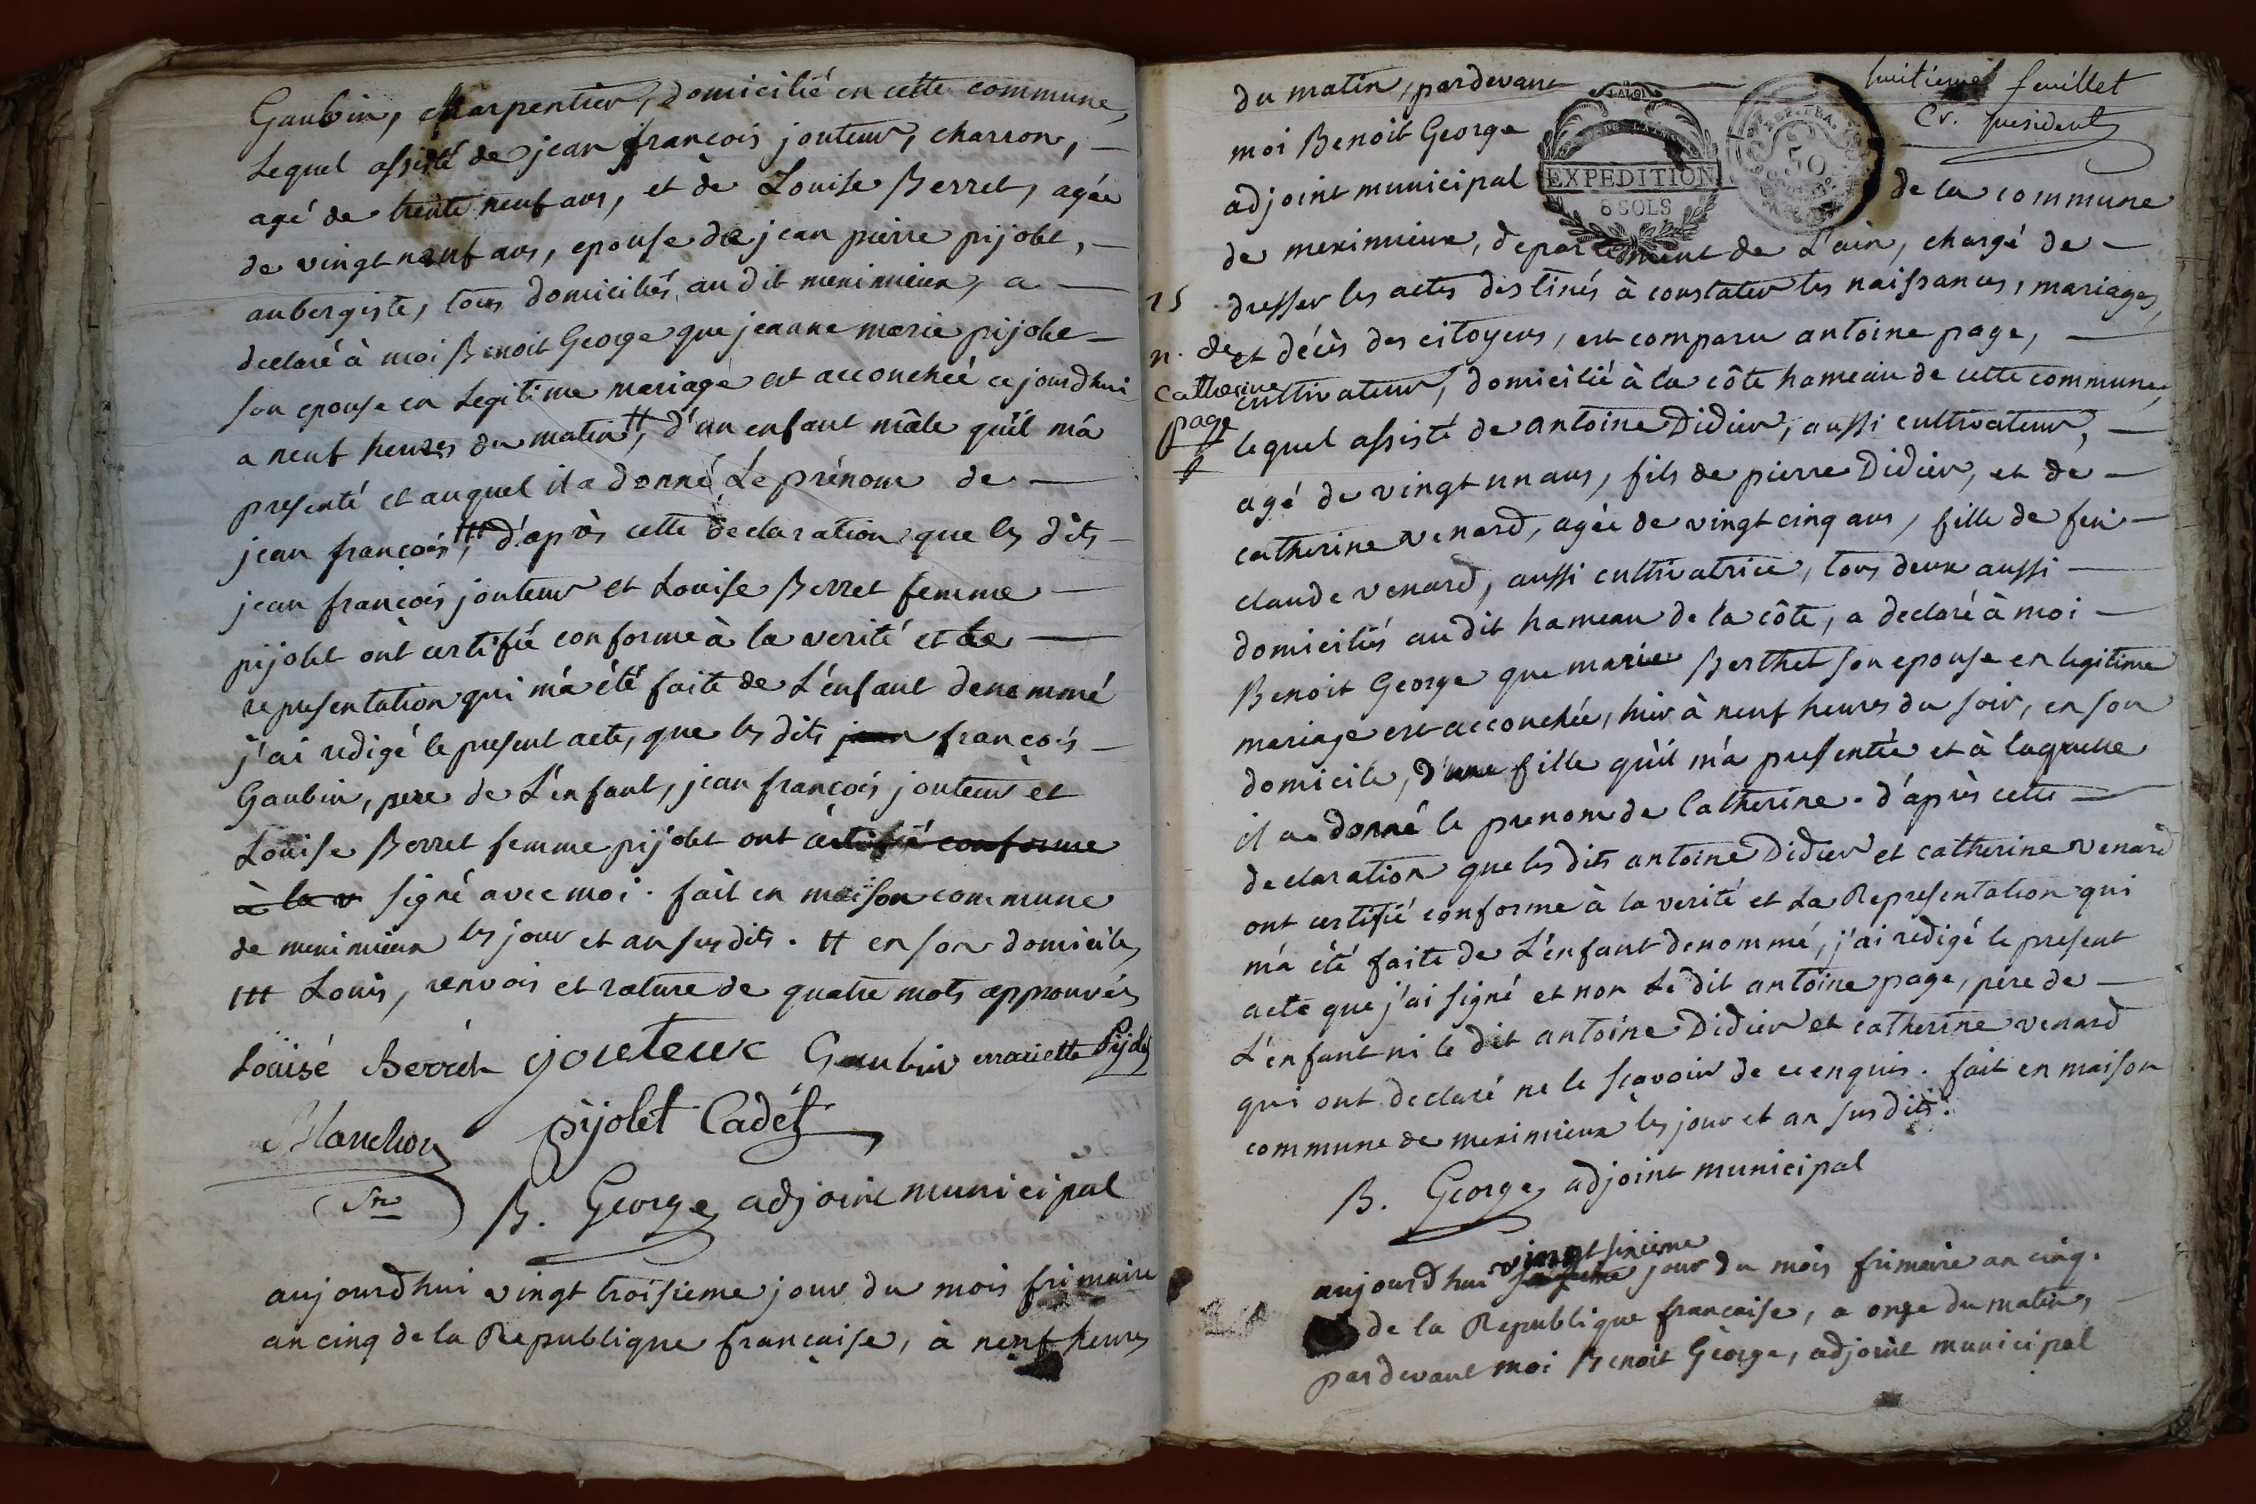 Gaubin, charpentier, domicilié en cette commune,
Lequel assisté de jean françois jouteur, charron,
agé de trente neuf ans, et de Louise Berret, agée
de vingt neuf ans, epouse de jean pierre pijolet,
aubergiste, tous domiciliés au dit meximieux, a
declaré à moi Benoit George que jeanne marie pijolet
son epouse en Legitime mariage est accouchée ce jourdhui
a neuf heures du matin ++, d'un enfant mâle qu'il m'a
presenté et auquel il a donné Le prénom de
jean françois +++, d'après cette declaration que les dits
jean françois jouteur et Louise Berret femme
pijolet ont certifié conforme à la verité et la
representation qui m'a été faite de L'enfant denommé
j'ai redigé le present acte, que les dits jean françois
Gaubin, pere de L'enfant, jean françois jouteur et
Louise Berret femme pijolet ont certifié conforme
à la v signé avec moi. fait en maison commune
de meximieux les jour et an susdits. ++ en son domicile
+++ Louis, renvois et rature de quatre mots approuvés
Loüisé Berret jouteur Gaubin mariette Pijolet
Blanchon pijolet Cadet
B. George adjoint municipal
aujourdhui vingt troisieme jour du mois frimaire
an cinq de la Republique française, à neuf heures
huitieme feuillet
Cr. president
du matin, pardevant
moi Benoit George
EXPEDITION
8 SOLS
50
adjoint municipal de la commune
de meximieux, departement de L'ain, chargé de
15
dresser les actes destinés à constater les naissances, mariages,
n. de
et décès des citoyens, est comparu antoine page,
Catherine
cultivateur, domicilié à la côte hameau de cette commune,
page
lequel assisté de antoine Didier, aussi cultivateur,
agé de vingt un ans, fils de pierre Didier, et de
catherine venard, agée de vingt cinq ans, fille de feu
claude venard, aussi cultivatrice, tous deux aussi
domiciliés au dit hameau de la côte, a declaré à moi
Benoit George que marie Berthet son epouse en legitime
mariage est accouchée, hier à neuf heures du soir, en son
domicile, d'une fille qu'il m'a presentée et à laquelle
il a donné le prenom de Catherine. d'après cette
declaration que les dits antoine Didier et catherine venard
ont certifié conforme à la verité et La Representation qui
m'a été faite de L'enfant denommé, j'ai redigé le present
acte que j'ai signé et non Le dit antoine page, pere de
L'enfant ni le dit antoine Didier et catherine venard
qui ont declaré ne le sçavoir de ce enquis. fait en maison
commune de meximieux les jour et an susdits.
B. George adjoint municipal
vingt sixieme
aujourdhui jour du mois frimaire an cinq.
de la Republique française, a onze du matin,
pardevant moi Benoit George, adjoint municipal